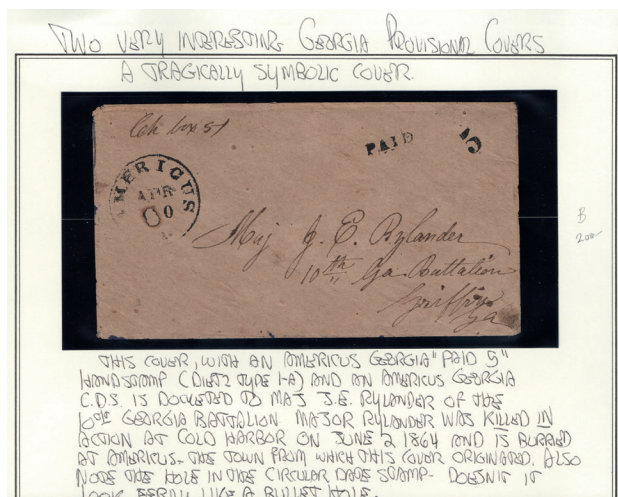 TWO VERY INTERESTING GEORGIA PROVISIONAL COVERS
A TRAGICALLY SYMBOLIC COVER.
Ch box 51
PAID 5
AMERICUS
APR
00
Maj J. E. Rylander
10th Ga Battalion
Griffin
Ga
B
200-
THIS COVER, WITH AN AMERICUS GEORGIA "PAID 5"
HANDSTAMP (DIETZ TYPE I-A) AND AN AMERICUS GEORGIA
C.D.S. IS DOCKETED TO MAJ J.E. RYLANDER OF THE
10th GEORGIA BATTALION. MAJOR RYLANDER WAS KILLED IN
ACTION AT COLD HARBOR ON JUNE 2 1864 AND IS BURIED
AT AMERICUS- THE TOWN FROM WHICH THIS COVER ORIGINATED. ALSO
NOTE THE HOLE IN THE CIRCULAR DATE STAMP- DOESN'T IT
LOOK EERILY LIKE A BULLET HOLE.